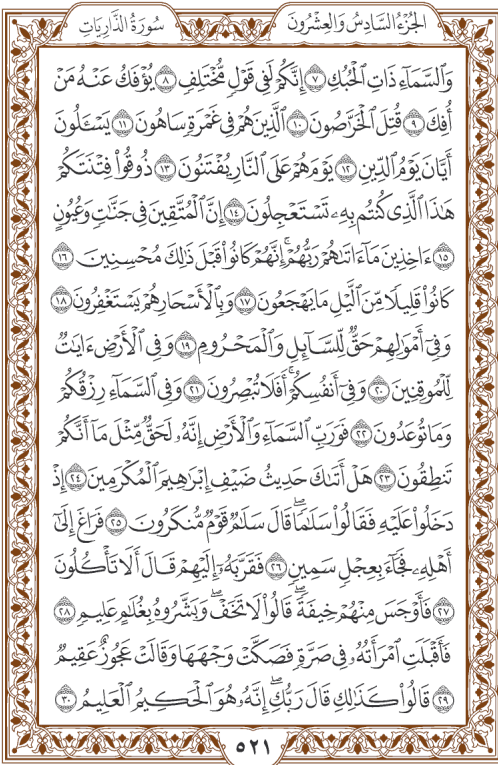 سُورَةُ الذَّارِيَاتِ
الجُزْءُ السَّادِسُ وَالعِشْرُونَ
وَالسَّمَآءِ ذَاتِ الْحُبُكِ ٧ إِنَّكُمْ لَفِى قَوْلٍ مُّخْتَلِفٍ ٨ يُؤْفَكُ عَنْهُ مَنْ
أُفِكَ ٩ قُتِلَ الْخَرَّٰصُونَ ١٠ الَّذِينَ هُمْ فِى غَمْرَةٍ سَاهُونَ ١١ يَسْـَٔلُونَ
أَيَّانَ يَوْمُ الدِّينِ ١٢ يَوْمَ هُمْ عَلَى النَّارِ يُفْتَنُونَ ١٣ ذُوقُوا۟ فِتْنَتَكُمْ
هَٰذَا الَّذِى كُنتُم بِهِۦ تَسْتَعْجِلُونَ ١٤ إِنَّ الْمُتَّقِينَ فِى جَنَّٰتٍ وَعُيُونٍ
١٥ ءَاخِذِينَ مَآ ءَاتَىٰهُمْ رَبُّهُمْ ۚ إِنَّهُمْ كَانُوا۟ قَبْلَ ذَٰلِكَ مُحْسِنِينَ ١٦
كَانُوا۟ قَلِيلًا مِّنَ الَّيْلِ مَا يَهْجَعُونَ ١٧ وَبِالْأَسْحَارِ هُمْ يَسْتَغْفِرُونَ ١٨
وَفِىٓ أَمْوَٰلِهِمْ حَقٌّ لِّلسَّآئِلِ وَالْمَحْرُومِ ١٩ وَفِى الْأَرْضِ ءَايَٰتٌ
لِّلْمُوقِنِينَ ٢٠ وَفِىٓ أَنفُسِكُمْ ۚ أَفَلَا تُبْصِرُونَ ٢١ وَفِى السَّمَآءِ رِزْقُكُمْ
وَمَا تُوعَدُونَ ٢٢ فَوَرَبِّ السَّمَآءِ وَالْأَرْضِ إِنَّهُۥ لَحَقٌّ مِّثْلَ مَآ أَنَّكُمْ
تَنطِقُونَ ٢٣ هَلْ أَتَىٰكَ حَدِيثُ ضَيْفِ إِبْرَٰهِيمَ الْمُكْرَمِينَ ٢٤ إِذْ
دَخَلُوا۟ عَلَيْهِ فَقَالُوا۟ سَلَٰمًا ۖ قَالَ سَلَٰمٌ قَوْمٌ مُّنكَرُونَ ٢٥ فَرَاغَ إِلَىٰٓ
أَهْلِهِۦ فَجَآءَ بِعِجْلٍ سَمِينٍ ٢٦ فَقَرَّبَهُۥٓ إِلَيْهِمْ قَالَ أَلَا تَأْكُلُونَ
٢٧ فَأَوْجَسَ مِنْهُمْ خِيفَةً ۖ قَالُوا۟ لَا تَخَفْ ۖ وَبَشَّرُوهُ بِغُلَٰمٍ عَلِيمٍ ٢٨
فَأَقْبَلَتِ امْرَأَتُهُۥ فِى صَرَّةٍ فَصَكَّتْ وَجْهَهَا وَقَالَتْ عَجُوزٌ عَقِيمٌ
٢٩ قَالُوا۟ كَذَٰلِكِ قَالَ رَبُّكِ ۖ إِنَّهُۥ هُوَ الْحَكِيمُ الْعَلِيمُ ٣٠
٥٢١